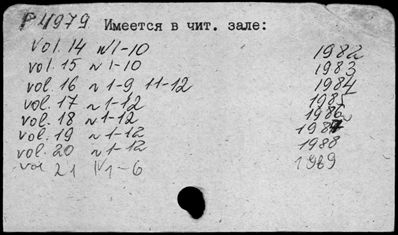 P4979 Имеется в чит. зале:
vol. 14 N1-10 1982
vol. 15 N1-10 1983
vol. 16 N1-9, 11-12 1984
vol. 17 N1-12 1985
vol. 18 N1-12 1986
vol. 19 N1-12 1987
vol. 20 N1-12 1988
vol 21 N1-6 1989